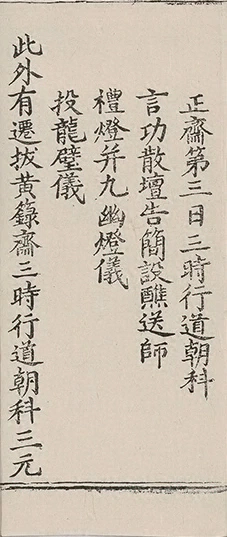 正齋第三日三時行道朝科
言功散壇告簡設醮送師
禮燈并九幽燈儀
投龍璧儀
此外有遷拔黃籙齋三時行道朝科三元